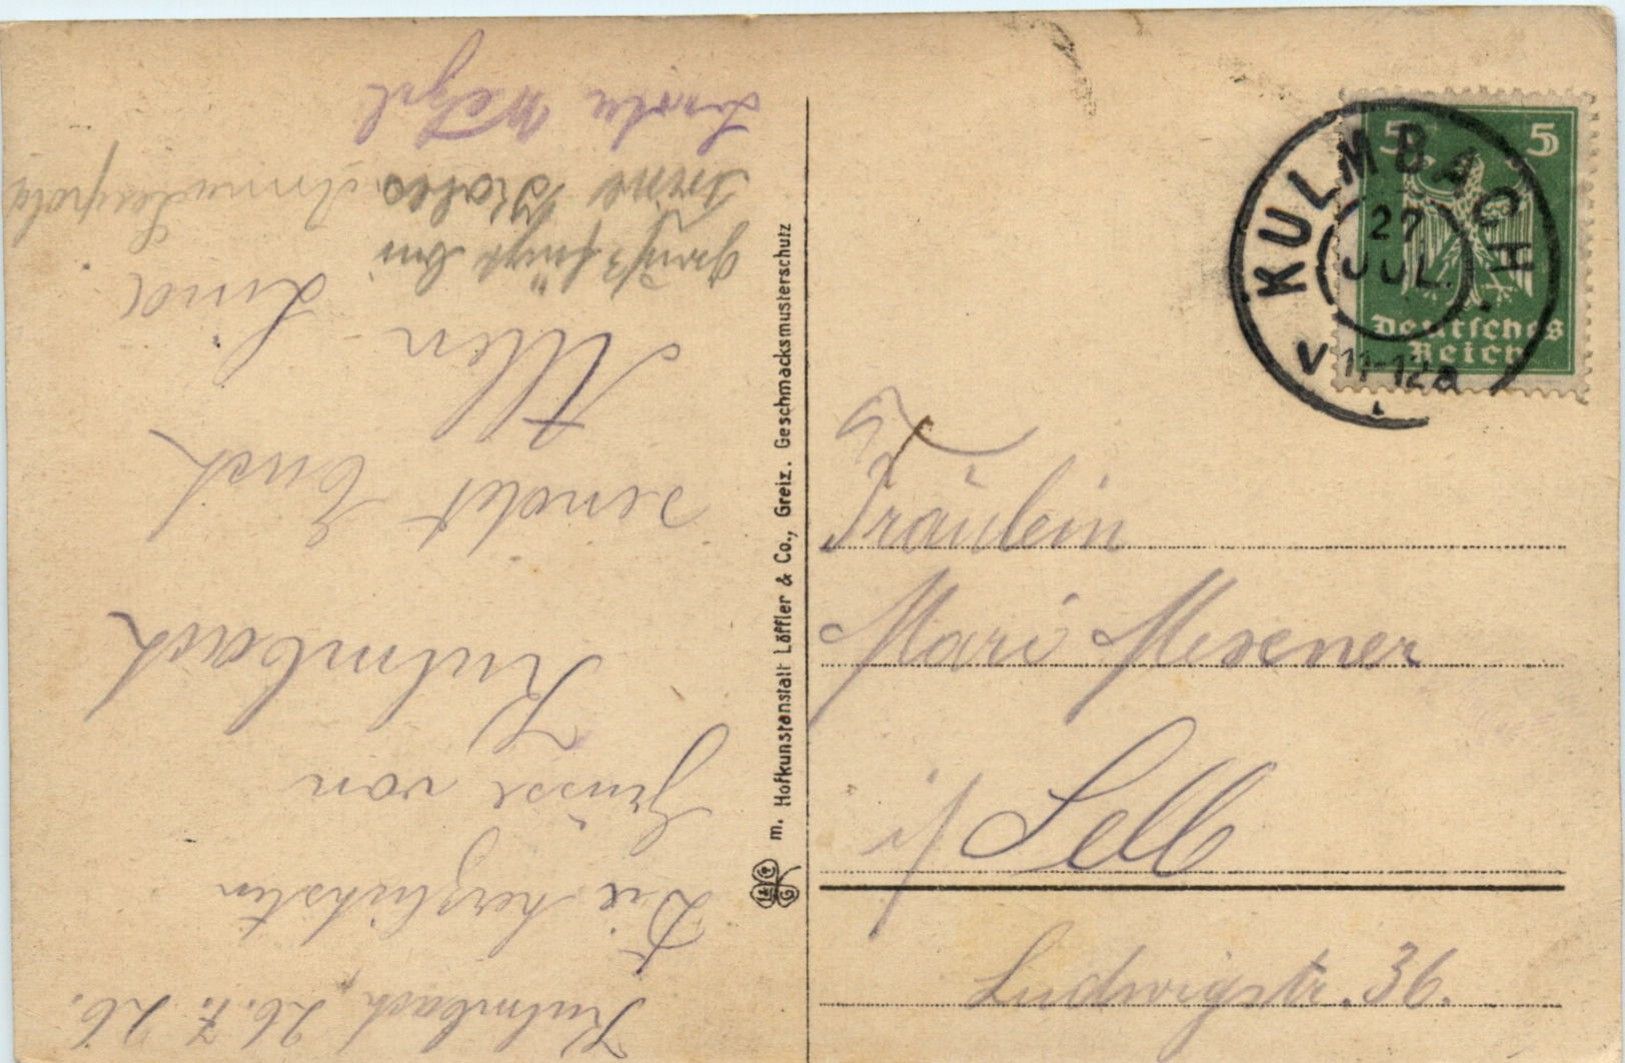 Kulmbach, 26.7.26.
Die herzlichsten
Grüsse von
Kulmbach
sendet Euch
Allen Lina
Gruß fügt bei
m. Hofkunstanstalt Löffler & Co., Greiz. Geschmacksmusterschutz
KULMBACH
27
JUL.
V 11-12a
5 5
Deutsches
Reich
Fräulein
Mari Mexener
i/ Selb
Ludwigstr. 36.